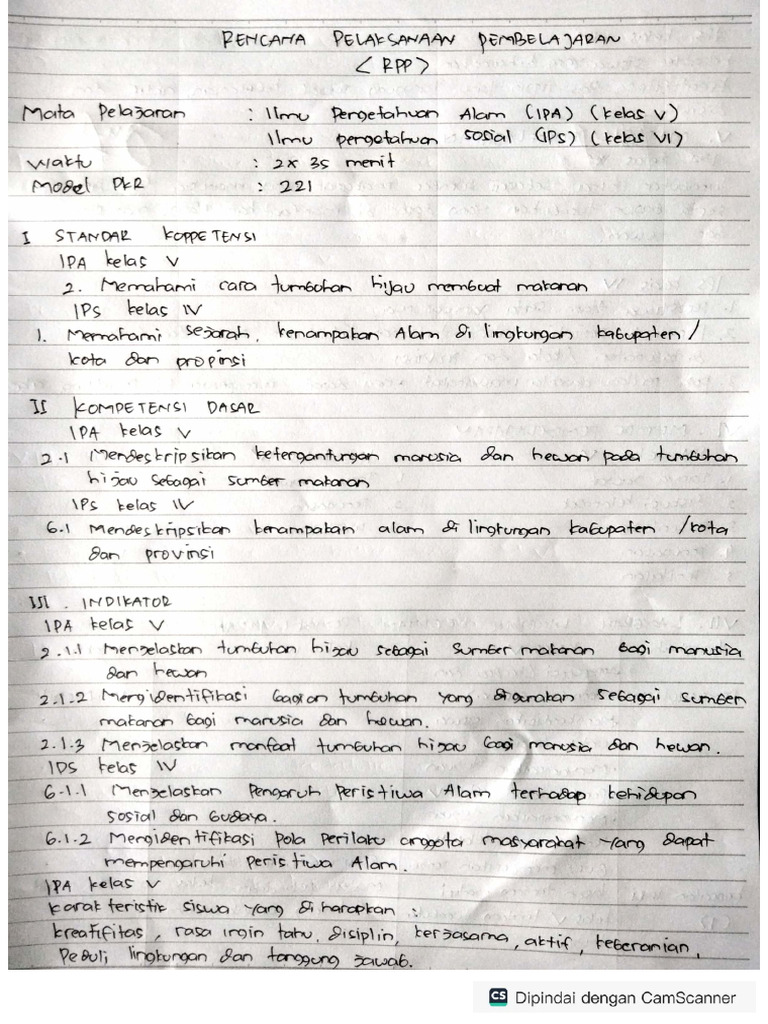 RENCANA PELAKSANAAN PEMBELAJARAN
< RPP >
Mata Pelajaran : Ilmu Pengetahuan Alam (IPA) (kelas V)
Ilmu pengetahuan sosial (IPS) (kelas VI)
Waktu : 2x 35 menit
Model PKR : 221
I STANDAR KOPPETENSI
IPA kelas V
2. Memahami cara tumbuhan hijau membuat makanan
IPS kelas IV
1. Memahami sejarah, kenampakan Alam di lingkungan kabupaten /
kota dan propinsi
II KOMPETENSI DASAR
IPA kelas V
2.1 Mendeskripsikan ketergantungan manusia dan hewan pada tumbuhan
hijau sebagai sumber makanan
IPS kelas IV
6.1 Mendeskripsikan kenampakan alam di lingkungan kabupaten /kota
dan provinsi
III . INDIKATOR
IPA kelas V
2.1.1 Menjelaskan tumbuhan hijau sebagai sumber makanan bagi manusia
dan hewan
2.1.2 Mengidentifikasi bagian tumbuhan yang digunakan sebagai sumber
makanan bagi manusia dan hewan.
2.1.3 Menjelaskan manfaat tumbuhan hijau bagi manusia dan hewan.
IPS kelas IV
6.1.1 Menjelaskan Pengaruh Peristiwa Alam terhadap kehidupan
sosial dan budaya.
6.1.2 Mengidentifikasi pola perilaku anggota masyarakat yang dapat
mempengaruhi peristiwa Alam.
IPA kelas V
karakteristik siswa yang di harapkan :
kreatifitas, rasa ingin tahu, disiplin, kerjasama, aktif, keberanian,
Peduli lingkungan dan tanggung jawab.
CS Dipindai dengan CamScanner